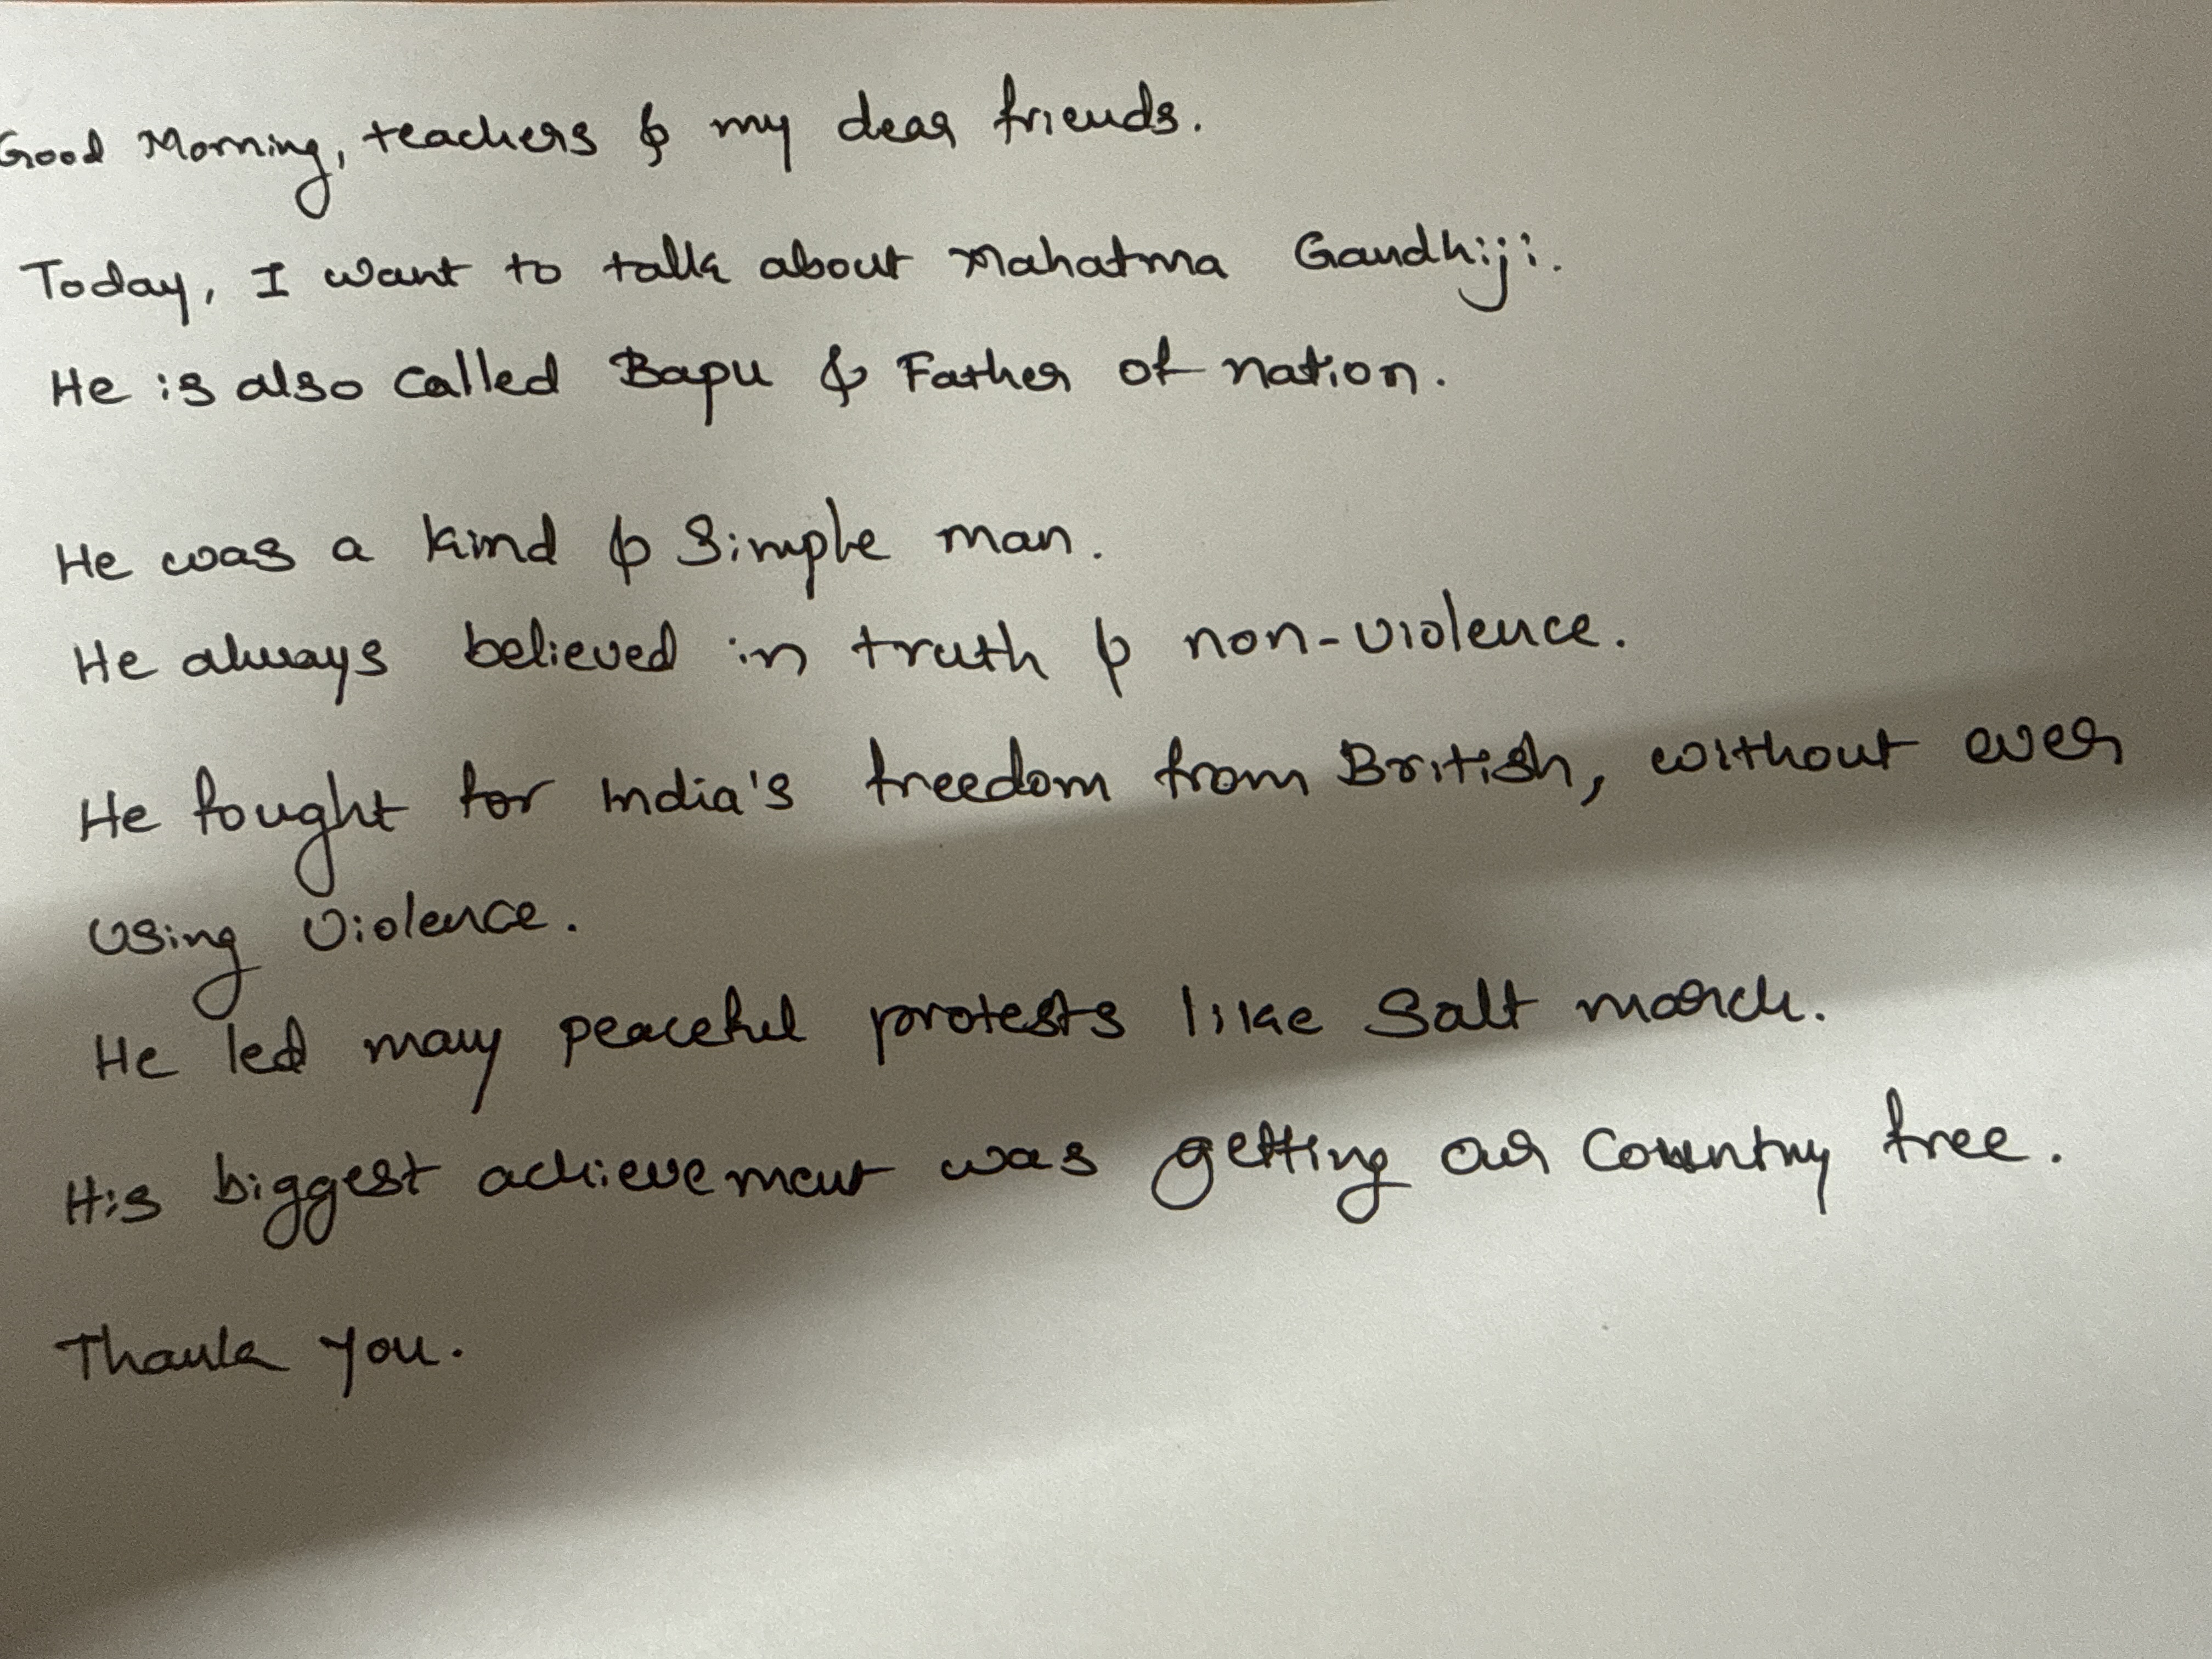 Good Morning, teachers & my dear friends.
Today, I want to talk about Mahatma Gandhiji.
He is also called Bapu & Father of nation.
He was a kind & Simple man.
He always believed in truth & non-violence.
He fought for India's freedom from British, without ever
Using Violence.
He led many peaceful protests like Salt march.
His biggest achievement was getting our Country free.
Thank you.